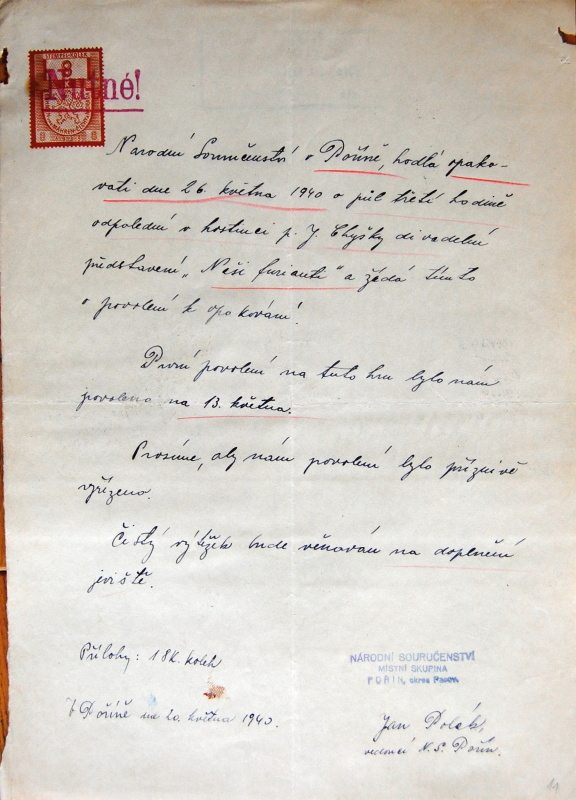 STEMPEL-KOLEK
8
K
8 8
Nutné!
Národní Souručenství v Poříně, hodlá opako-
vati dne 26. května 1940 o půl třetí hodině
odpolední v hostinci p. J. Chyšky divadelní
představení „Naši furianti" a žádá tímto
o povolení k opakování.
První povolení na tuto hru bylo nám
povoleno na 13. května.
Prosíme, aby nám povolení bylo příznivě
vyřízeno.
Čistý výtěžek bude věnován na doplnění
jeviště.
Přílohy: 1 8K. kolek
V Poříně dne 20. května 1940.
NÁRODNÍ SOURUČENSTVÍ
MÍSTNÍ SKUPINA
POŘÍN, okres Pacov.
Jan Polák,
vedoucí N. S. Pořín.